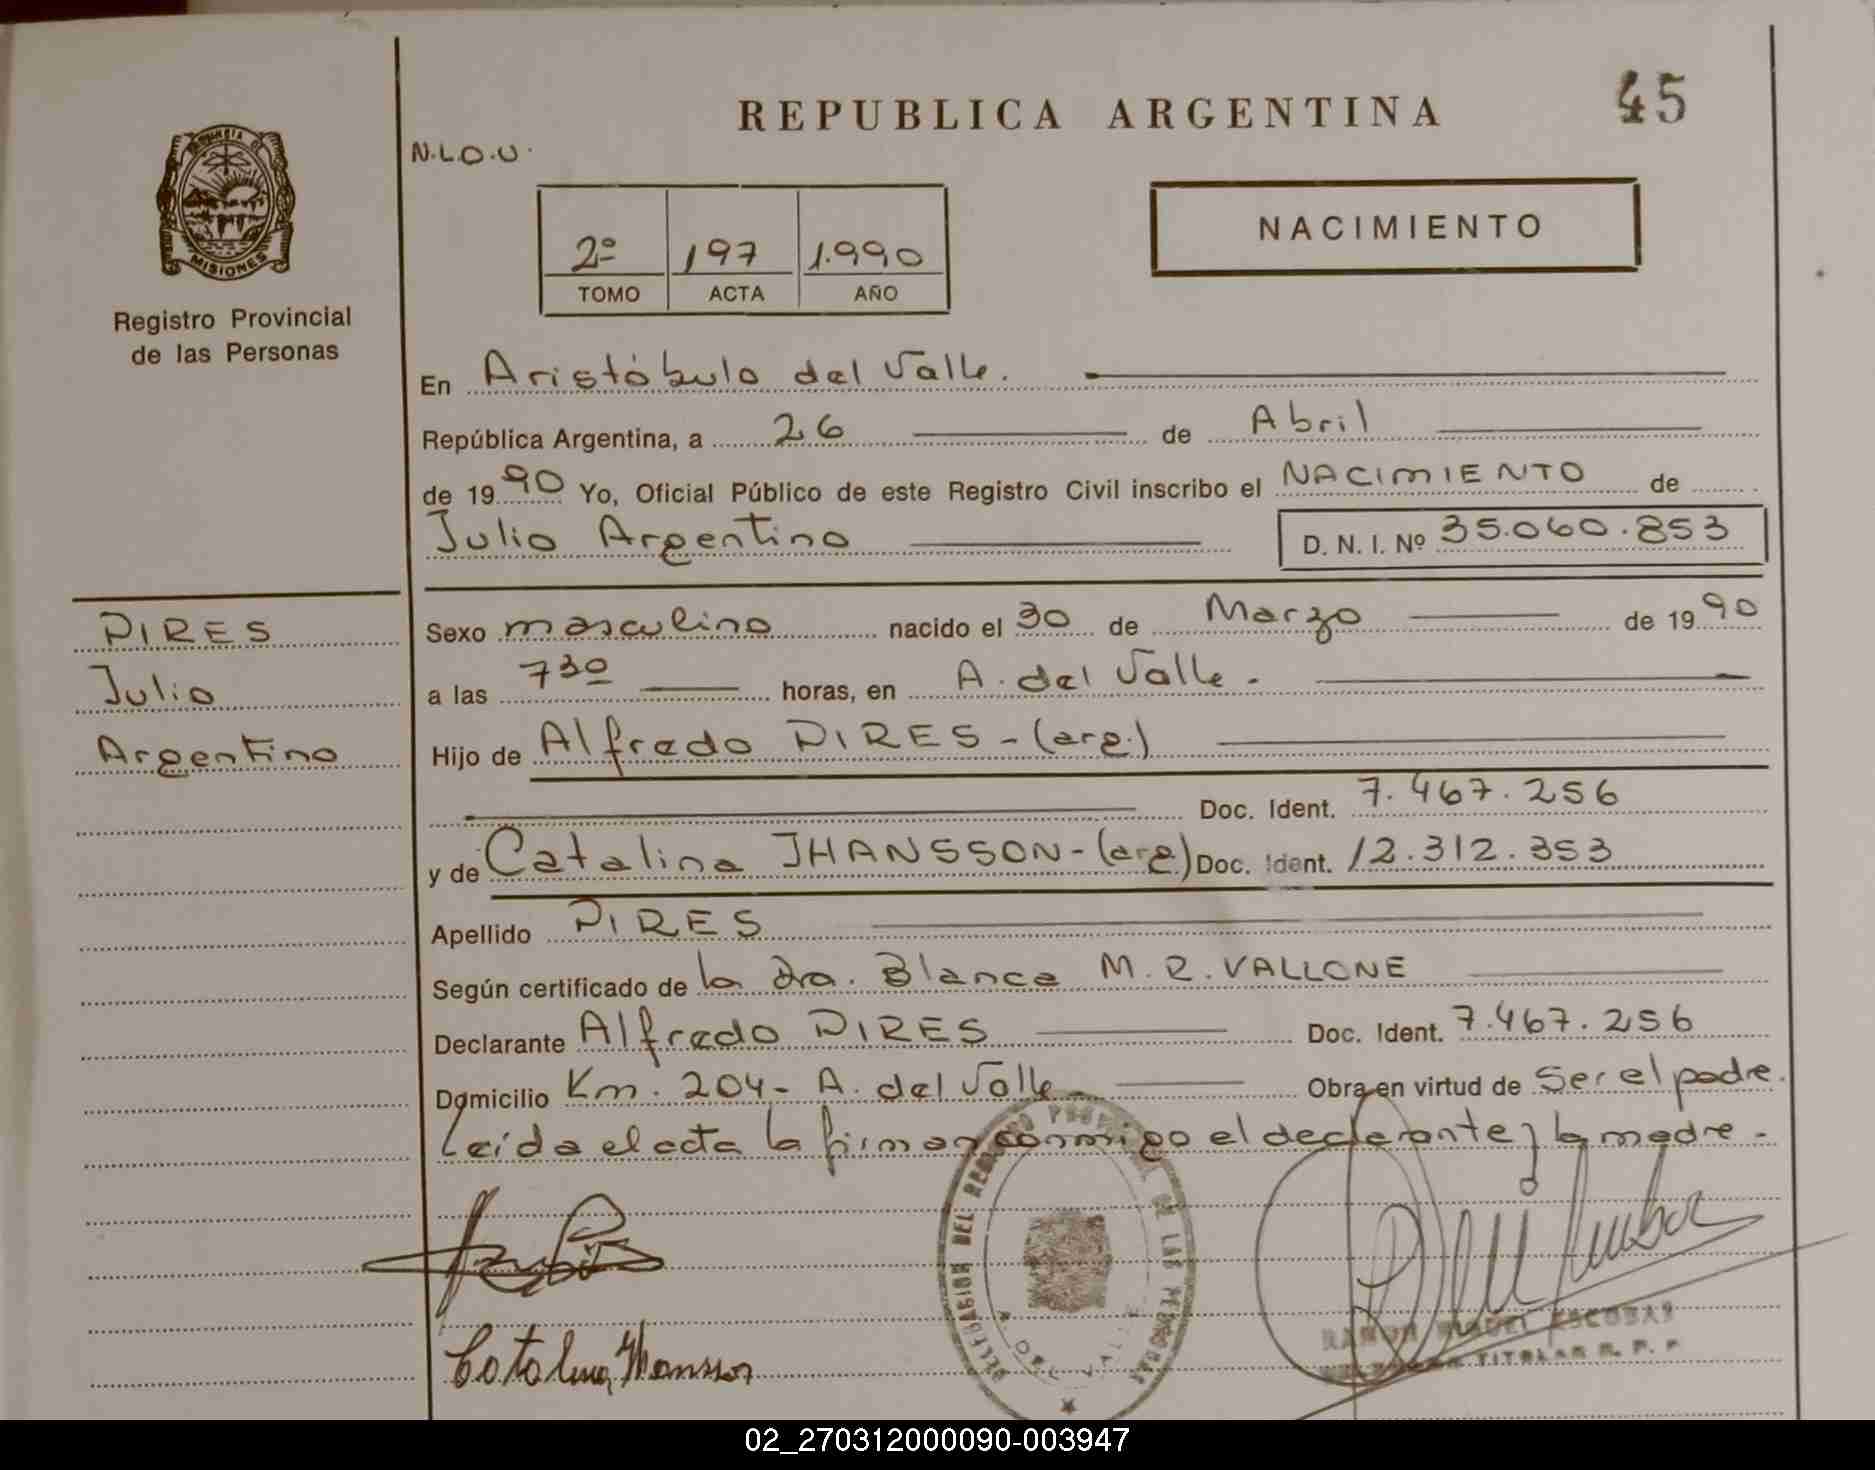 REPUBLICA ARGENTINA
45
N.L.O.U.
PROVINCIA DE
MISIONES
Registro Provincial
de las Personas
2º 197 1.990
TOMO ACTA AÑO
NACIMIENTO
En Aristóbulo del Valle.
República Argentina, a 26 de Abril
de 19 90 Yo, Oficial Público de este Registro Civil inscribo el NACIMIENTO de
Julio Argentino D. N. I. Nº 35.060.853
PIRES
Julio
Argentino
Sexo masculino nacido el 30 de Marzo de 19 90
a las 7 30 horas, en A. del Valle.
Hijo de Alfredo PIRES - (arg.)
Doc. Ident. 7.467.256
y de Catalina JHANSSON - (arg.) Doc. Ident. 12.312.353
Apellido PIRES
Según certificado de la Dra. Blanca M. R. VALLONE
Declarante Alfredo PIRES Doc. Ident. 7.467.256
Domicilio Km. 204 - A. del Valle Obra en virtud de Ser el padre.
Leída el acta la firman conmigo el declarante y la madre.-
DELEGACION DEL REGISTRO PROVINCIAL DE LAS PERSONAS
A. DEL VALLE
RAMON MIGUEL ESCOBAR
TITULAR R. P. P.
Catalina Jhansson
02_270312000090-003947